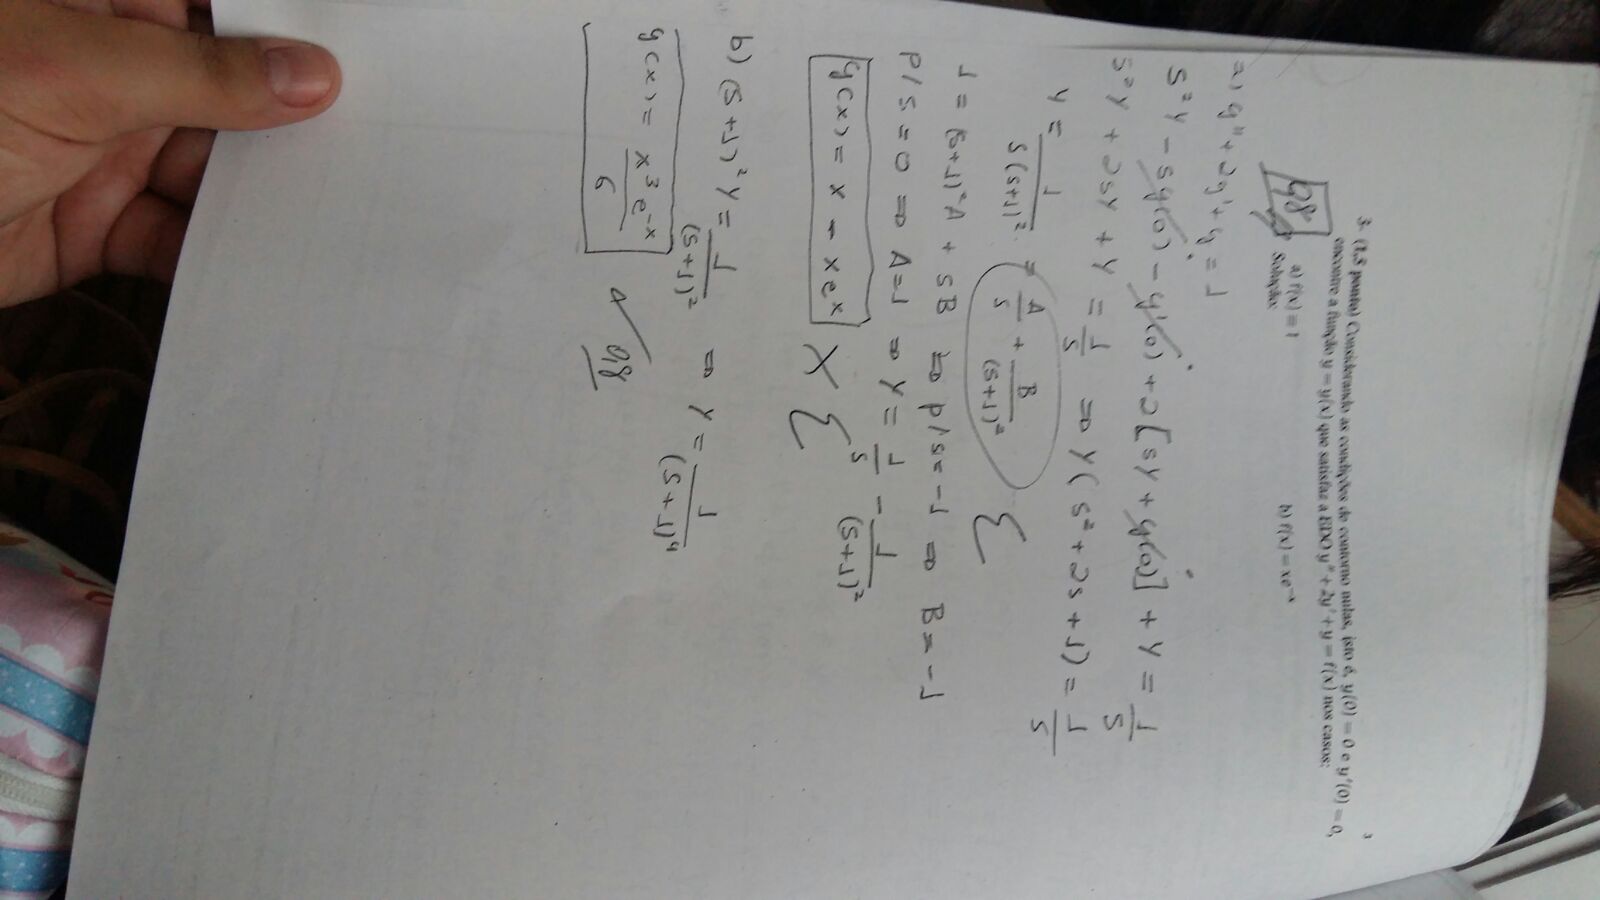 3
3. (1,5 ponto) Considerando as condições de contorno nulas, isto é, y(0) = 0 e y'(0) = 0,
encontre a função y = y(x) que satisfaz a EDO y'' + 2y' + y = f(x) nos casos:
a) f(x) = 1 b) f(x) = xe^{-x}
Solução:
0,8
a) y'' + 2y' + y = 1
S²Y - sy(0) - y'(0) + 2[sY + y(0)] + Y = 1/S
S²Y + 2SY + Y = 1/S ⇒ Y(S² + 2S + 1) = 1/S
Y = 1/S(S+1)² = A/S + B/(S+1)²
1 = (S+1)²A + SB ⇒ p/s = -1 ⇒ B = -1
p/ S = 0 ⇒ A = 1 ⇒ Y = 1/S - 1/(S+1)²
y(x) = x - xe^x
b) (S+1)²Y = 1/(S+1)² ⇒ Y = 1/(S+1)⁴
y(x) = x³e^{-x}/6
0,8